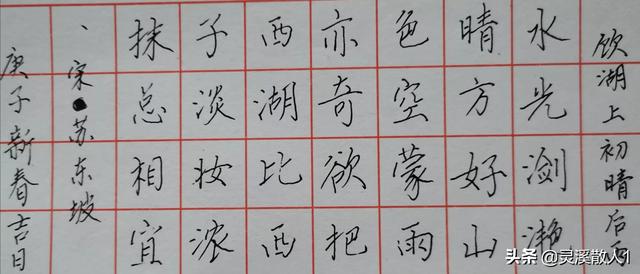 饮湖上初晴后雨
水光潋滟
晴方好山
色空蒙雨
亦奇欲把
西湖比西
子淡妆浓
抹总相宜
、宋●苏东坡
庚子新春吉日
头条 @灵溪散人1